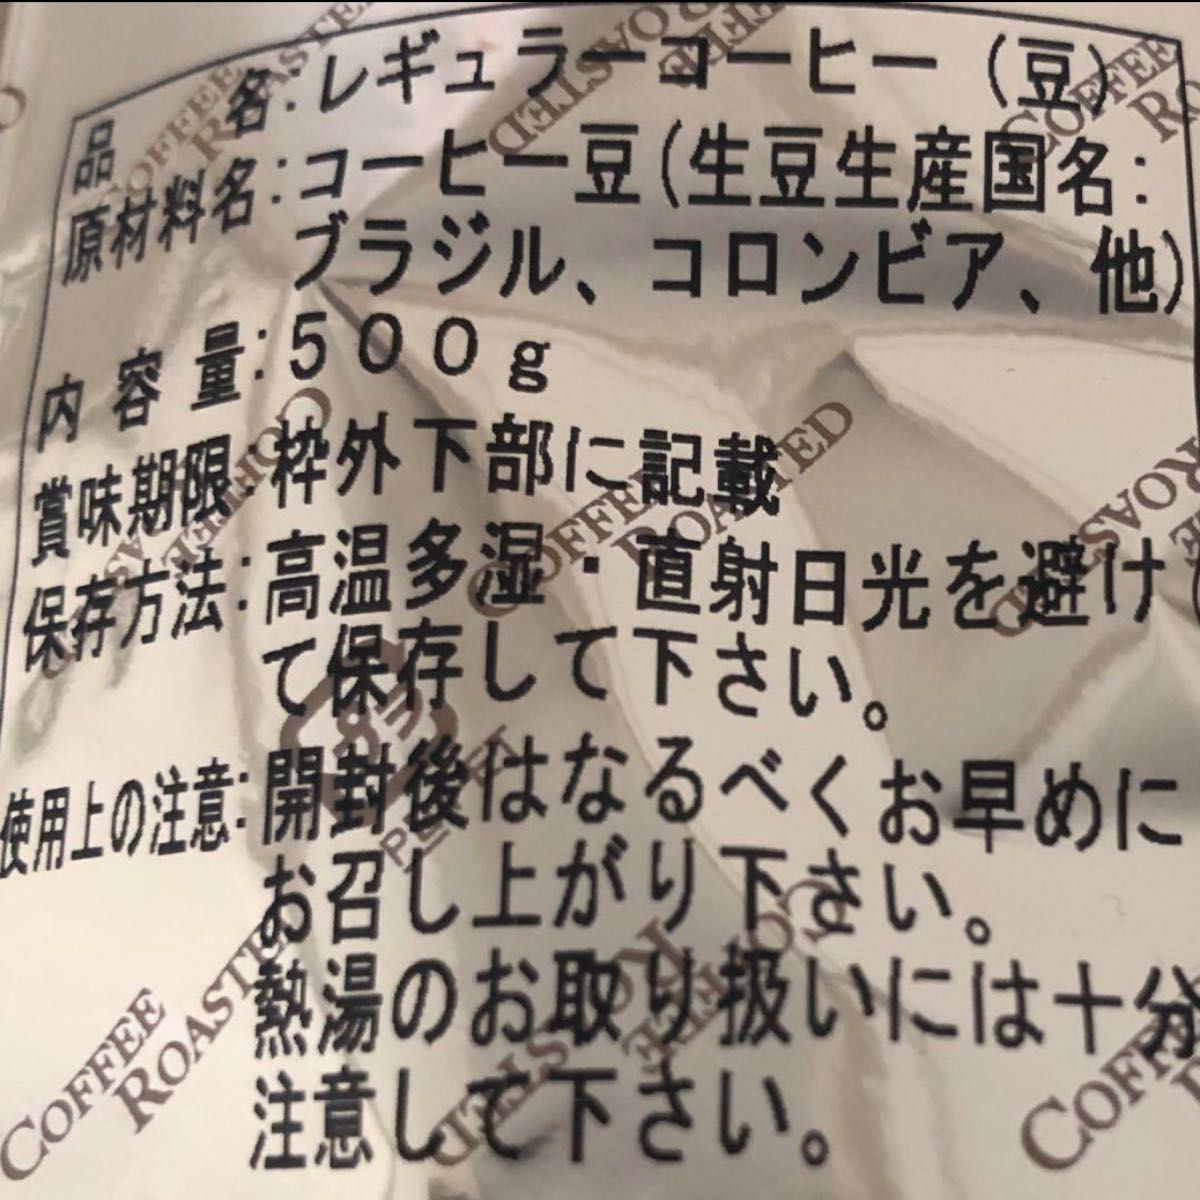 品名:レギュラーコーヒー(豆)
原材料名:コーヒー豆(生豆生産国名:
ブラジル、コロンビア、他)
内容量:500g
賞味期限:枠外下部に記載
保存方法:高温多湿・直射日光を避け
て保存して下さい。
使用上の注意:開封後はなるべくお早めに
お召し上がり下さい。
熱湯のお取り扱いには十分
注意して下さい。
COFFEE
ROASTED
COFFEE
ROASTED
COFFEE
ROASTED
COFFEE
ROASTED
COFFEE
ROASTED
COFFEE
ROASTED
COFFEE
ROASTED